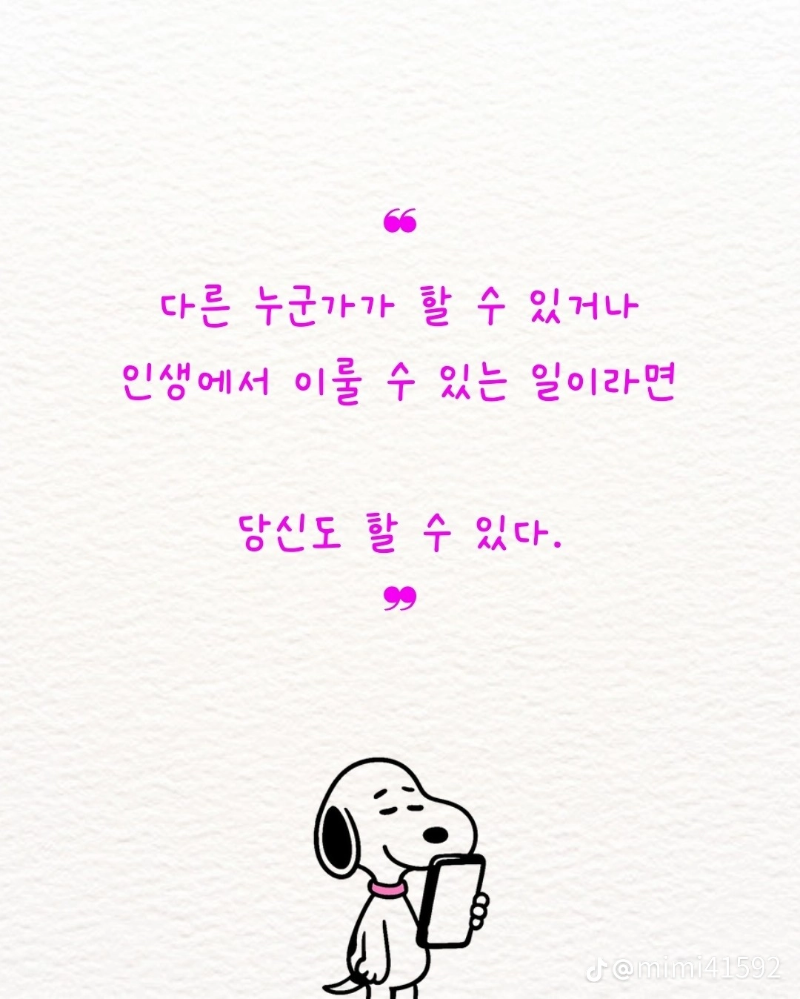 ❝
다른 누군가가 할 수 있거나
인생에서 이룰 수 있는 일이라면
당신도 할 수 있다.
❞
@mimi41592